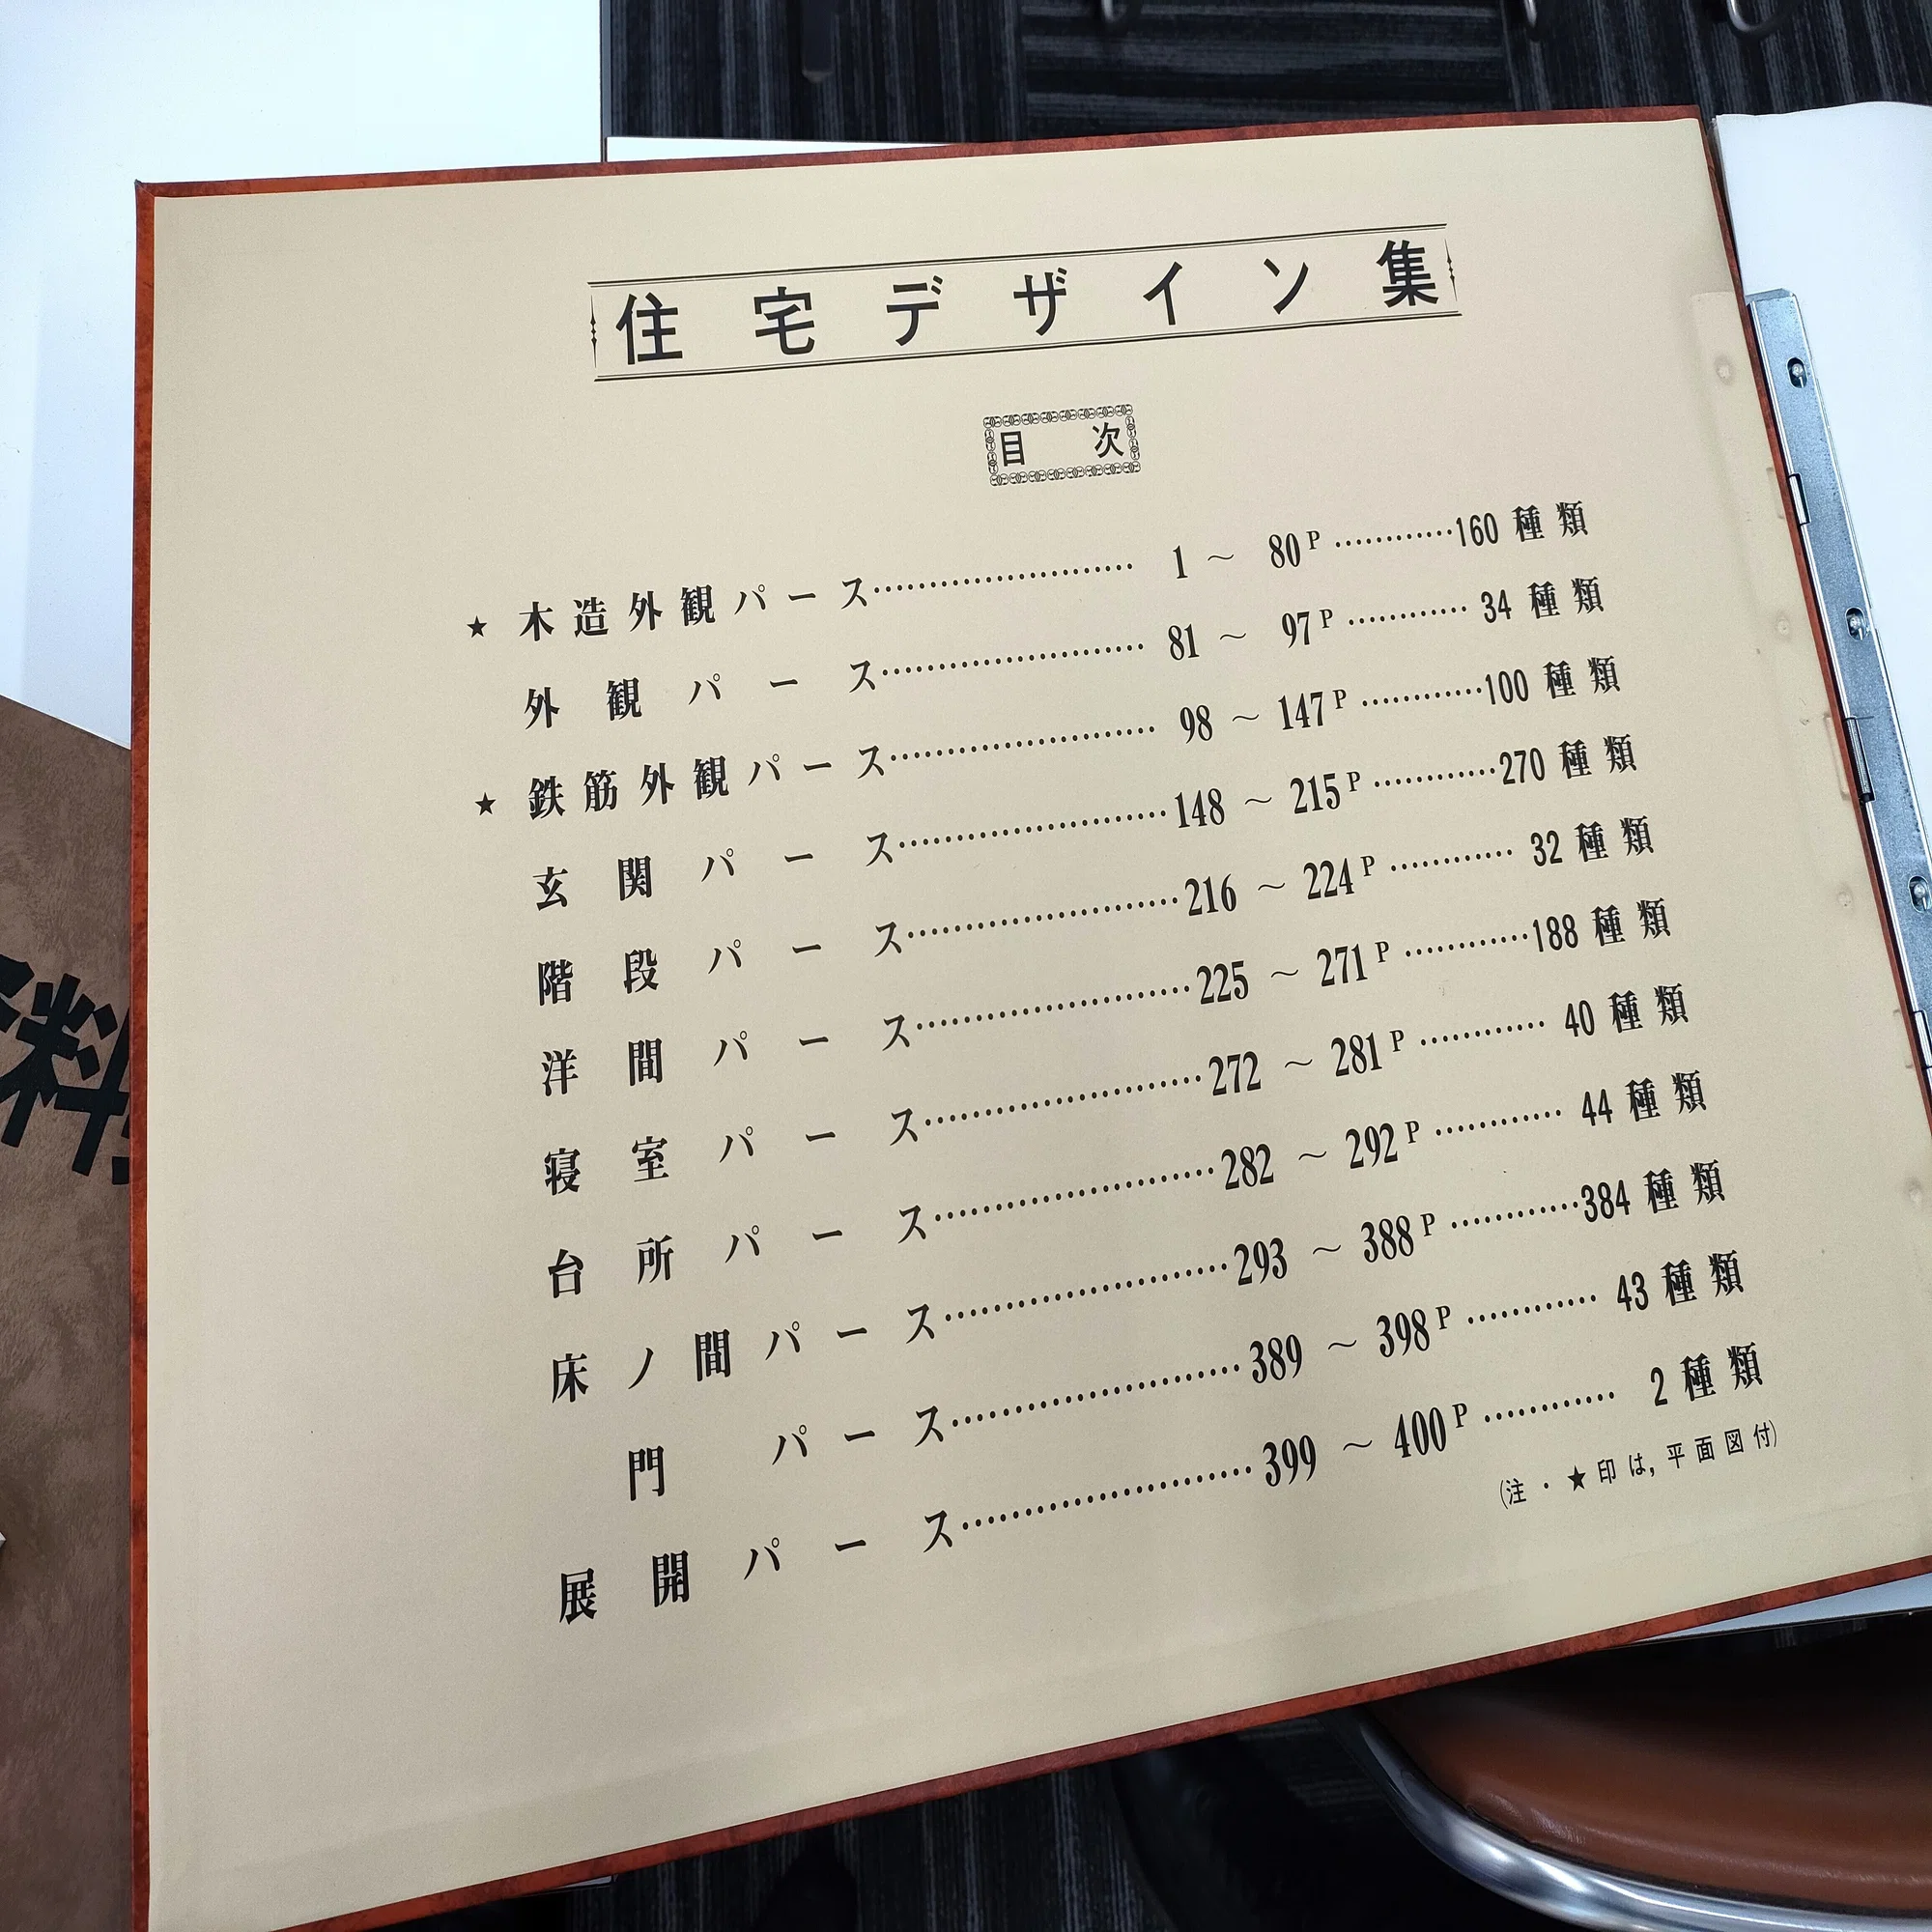 住宅デザイン集
目次
★木造外観パース…………………… 1 ～ 80P …………160種類
外観パース…………………… 81 ～ 97P ………… 34種類
★鉄筋外観パース…………………… 98 ～ 147P …………100種類
玄関パース……………………148 ～ 215P …………270種類
階段パース……………………216 ～ 224P ………… 32種類
洋間パース……………………225 ～ 271P …………188種類
寝室パース……………………272 ～ 281P ………… 40種類
台所パース……………………282 ～ 292P ………… 44種類
床ノ間パース……………………293 ～ 388P …………384種類
門パース……………………389 ～ 398P ………… 43種類
展開パース……………………399 ～ 400P ………… 2種類
(注・★印は,平面図付)
料